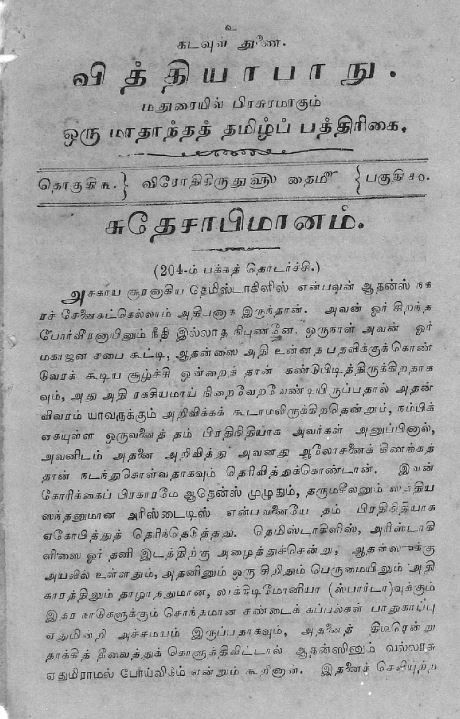 உ
கடவுள் துணை.
வித்தியாபாநு.
மதுரையில் பிரசுரமாகும்
ஒரு மாதாந்தத் தமிழ்ப் பத்திரிகை.
தொகுதி ௩. } விரோதிகிருது௵ தைமீ { பகுதி ௧௦.
சுதேசாபிமானம்.
(204-ம் பக்கத் தொடர்ச்சி.)
அசகாய சூரனாகிய தெமிஸ்டாகிளிஸ் என்பவன் ஆதன்ஸ் நக
ரச் சேனைகட்கெல்லாம் அதிபனாக இருந்தான். அவன் ஓர் சிறந்த
போர்வீரனாயினும் நீதி இல்லாத நிபுணனே. ஒருநாள் அவன் ஓர்
மகாஜன சபை கூட்டி, ஆதன்ஸை அதி உன்னத பதவிக்குக்கொண்
டுவரக் கூடிய சூழ்ச்சி ஒன்றைத் தான் கண்டுபிடித்திருக்கிறதாக
வும், அது அதி ரகசியமாய் நிறைவேறவேண்டியிருப்பதால் அதன்
விவரம் யாவருக்கும் அறிவிக்கக் கூடாமலிருக்கிறதென்றும், நம்பிக்
கையுள்ள ஒருவனைத் தம் பிரதிநிதியாக அவர்கள் அனுப்பினால்,
அவனிடம் அதனை அறிவித்து அவனது ஆலோசனைக் கிணங்கத்
தான் நடந்துகொள்வதாகவும் தெரிவித்துக்கொண்டான். இவன்
கோரிக்கைப் பிரகாரமே ஆதென்ஸ் முழுதும், தருமசீலனும் சத்திய
ஸந்தனுமான அரிஸ்டைடிஸ் என்பவனையே தம் பிரதிநிதியாக
ஏகோபித்துத் தெரிந்தெடுத்தது. தெமிஸ்டாகிளிஸ், அரிஸ்டாகி
ளிஸை ஓர் தனி இடத்திற்கு அழைத்துச்சென்று, ஆதன்ஸுக்கு
அயலில் உள்ளதும், அதனினும் ஒரு சிறிதும் பெருமையிலும் அதி
காரத்திலும் தாழாததுமான, லாக்கிடிமோனியா (ஸ்பார்டா)வுக்கும்
இதர நாடுகளுக்கும் சொந்தமான சண்டைக் கப்பல்கள் பாதுகாப்பு
ஏதுமின்றி அச்சமயம் இருப்பதாகவும், அதனைத் திடீரென்று
தாக்கித் தீவைத்துக் கொளுத்திவிட்டால் ஆதன்ஸினும் வல்லரசு
ஏதுமிராமல் போய்விடும் என்றும் கூறினான். இதனைச் செவியுற்ற